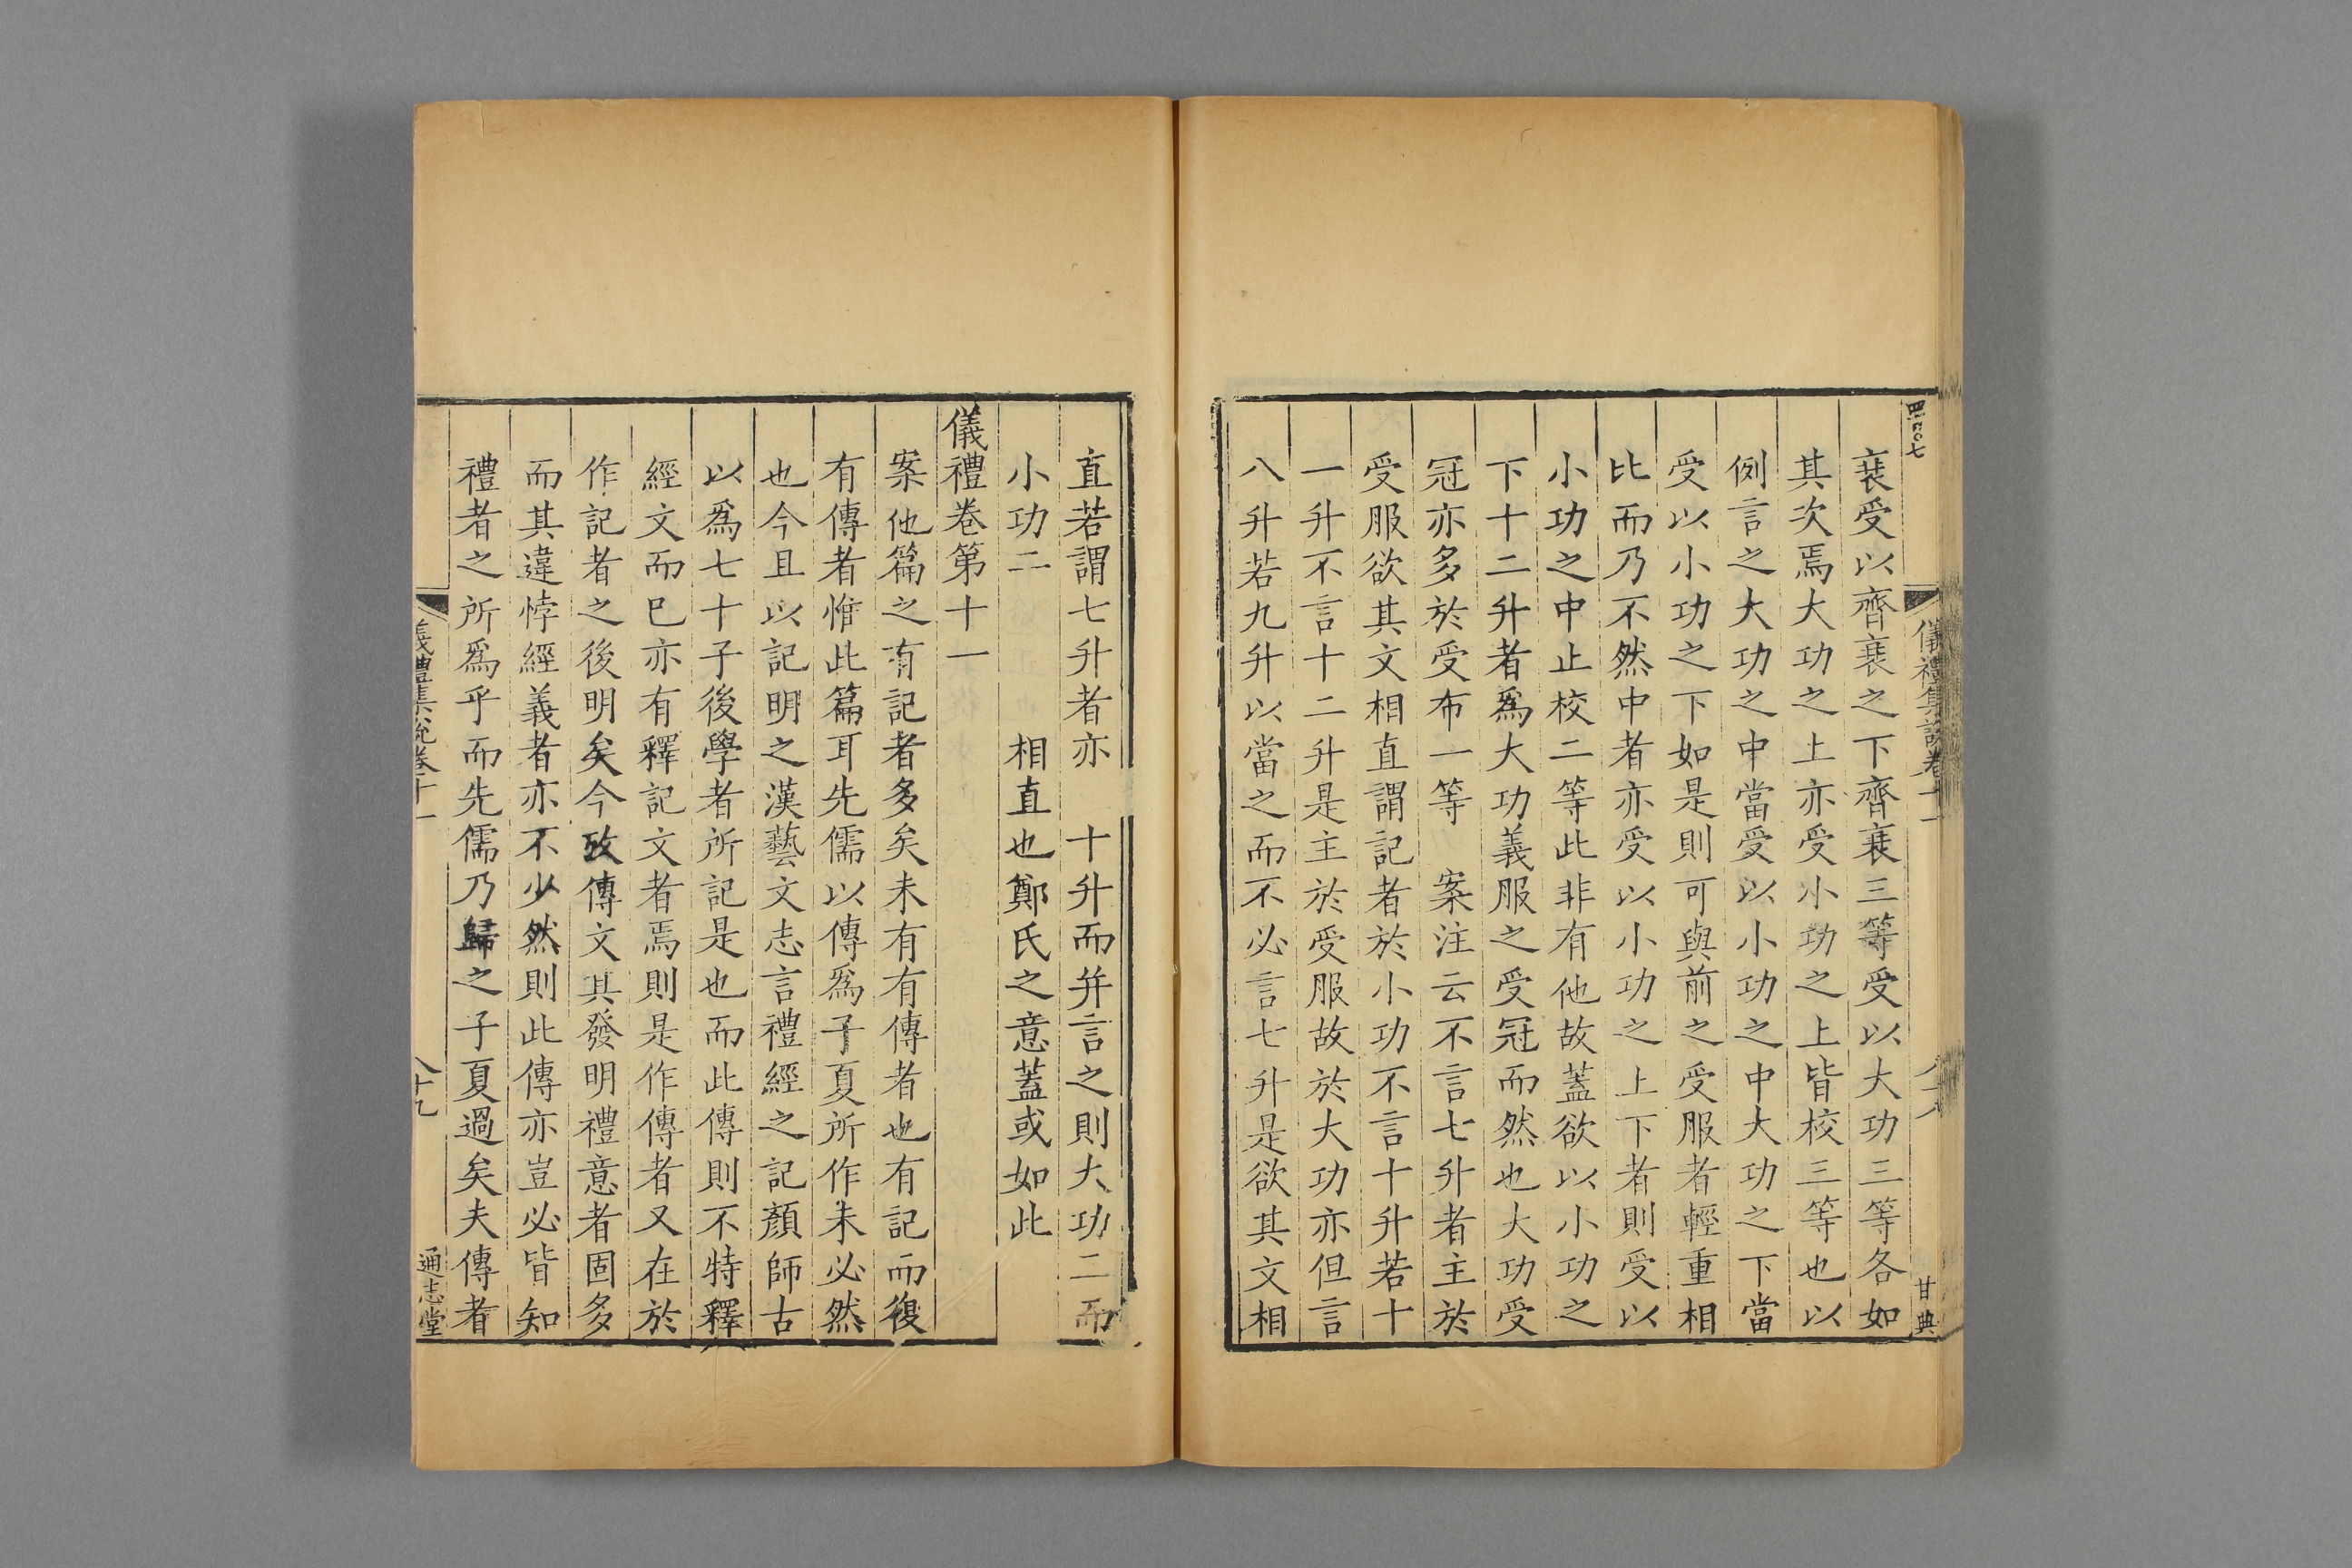 衰受以齊衰之下齊衰三等受以大功三等各如
其次焉大功之上亦受小功之上皆校三等也以
例言之大功之中當受以小功之中大功之下當
受以小功之下如是則可與前之受服者輕重相
比而乃不然中者亦受以小功之上下者則受以
小功之中止校二等此非有他故蓋欲以小功之
下十二升者爲大功義服之受冠而然也大功受
冠亦多於受布一等 案注云不言七升者主於
受服欲其文相直謂記者於小功不言十升若十
一升不言十二升是主於受服故於大功亦但言
八升若九升以當之而不必言七升是欲其文相
直若謂七升者亦 十升而并言之則大功二而
小功二 相直也鄭氏之意蓋或如此
儀禮卷第十一
案他篇之有記者多矣未有有傳者也有記而復
有傳者惟此篇耳先儒以傳爲子夏所作未必然
也今且以記明之漢藝文志言禮經之記顏師古
以爲七十子後學者所記是也而此傳則不特釋
經文而已亦有釋記文者焉則是作傳者又在於
作記者之後明矣今攷傳文其發明禮意者固多
而其違悖經義者亦不少然則此傳亦豈必皆知
禮者之所爲乎而先儒乃歸之子夏過矣夫傳者
儀禮集說卷十一
八十九
通志堂